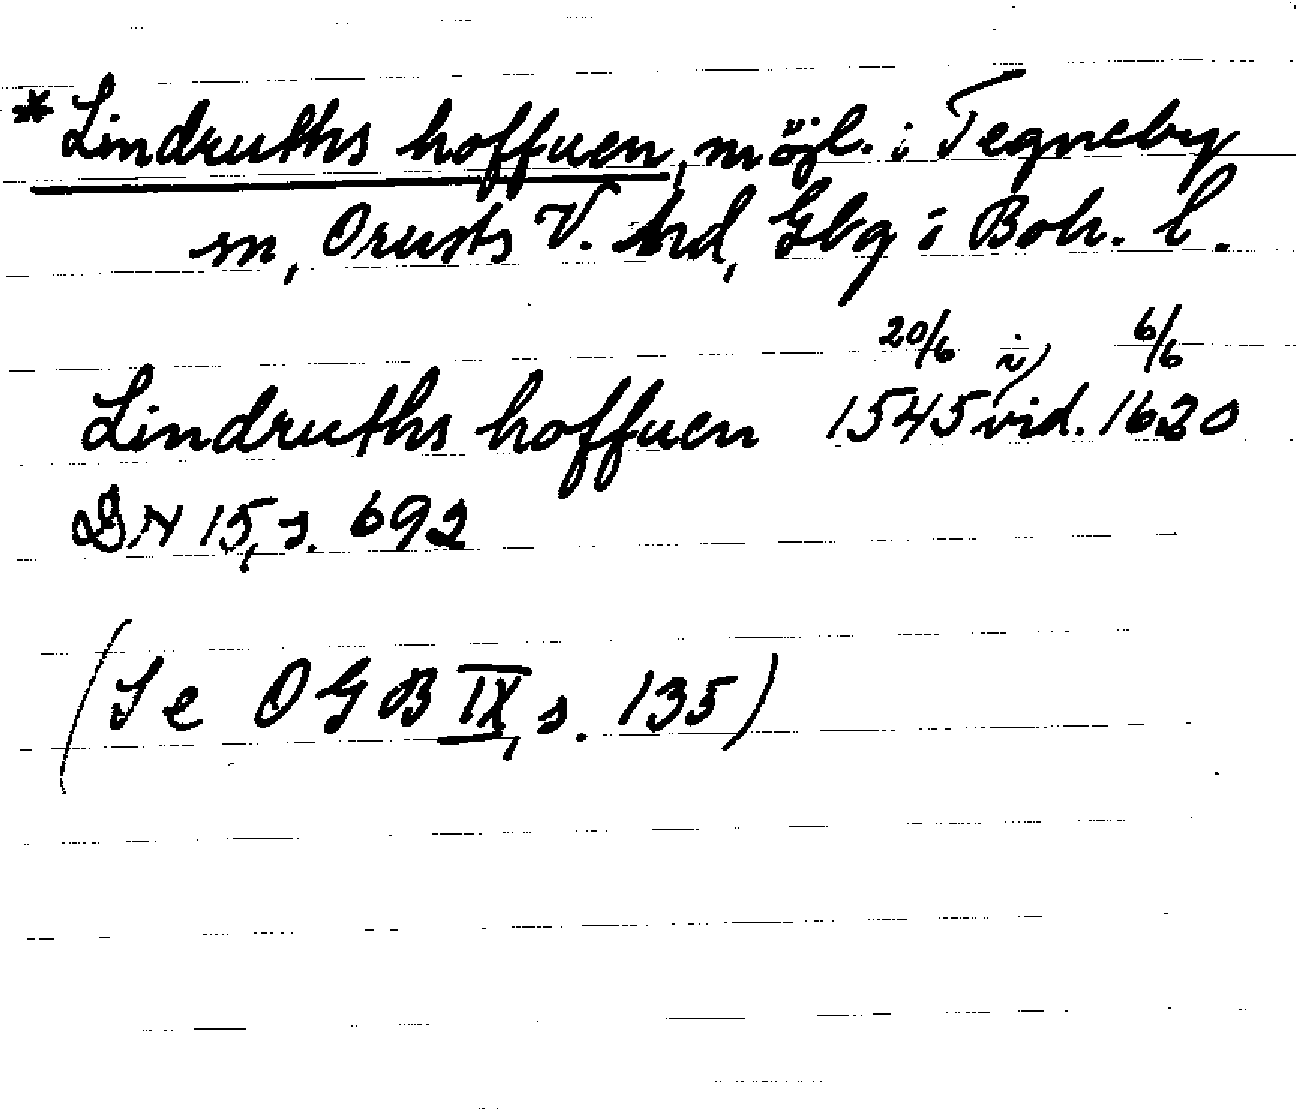 * Lindruths hoffuen, möjl. i Tegneby
sn, Orusts V. hd, Gbg i Boh. l.
Lindruths hoffuen 20/6 1545 i) vid. 6/6 1620
DN 15, s. 692
(Se OGB IX, s. 135)